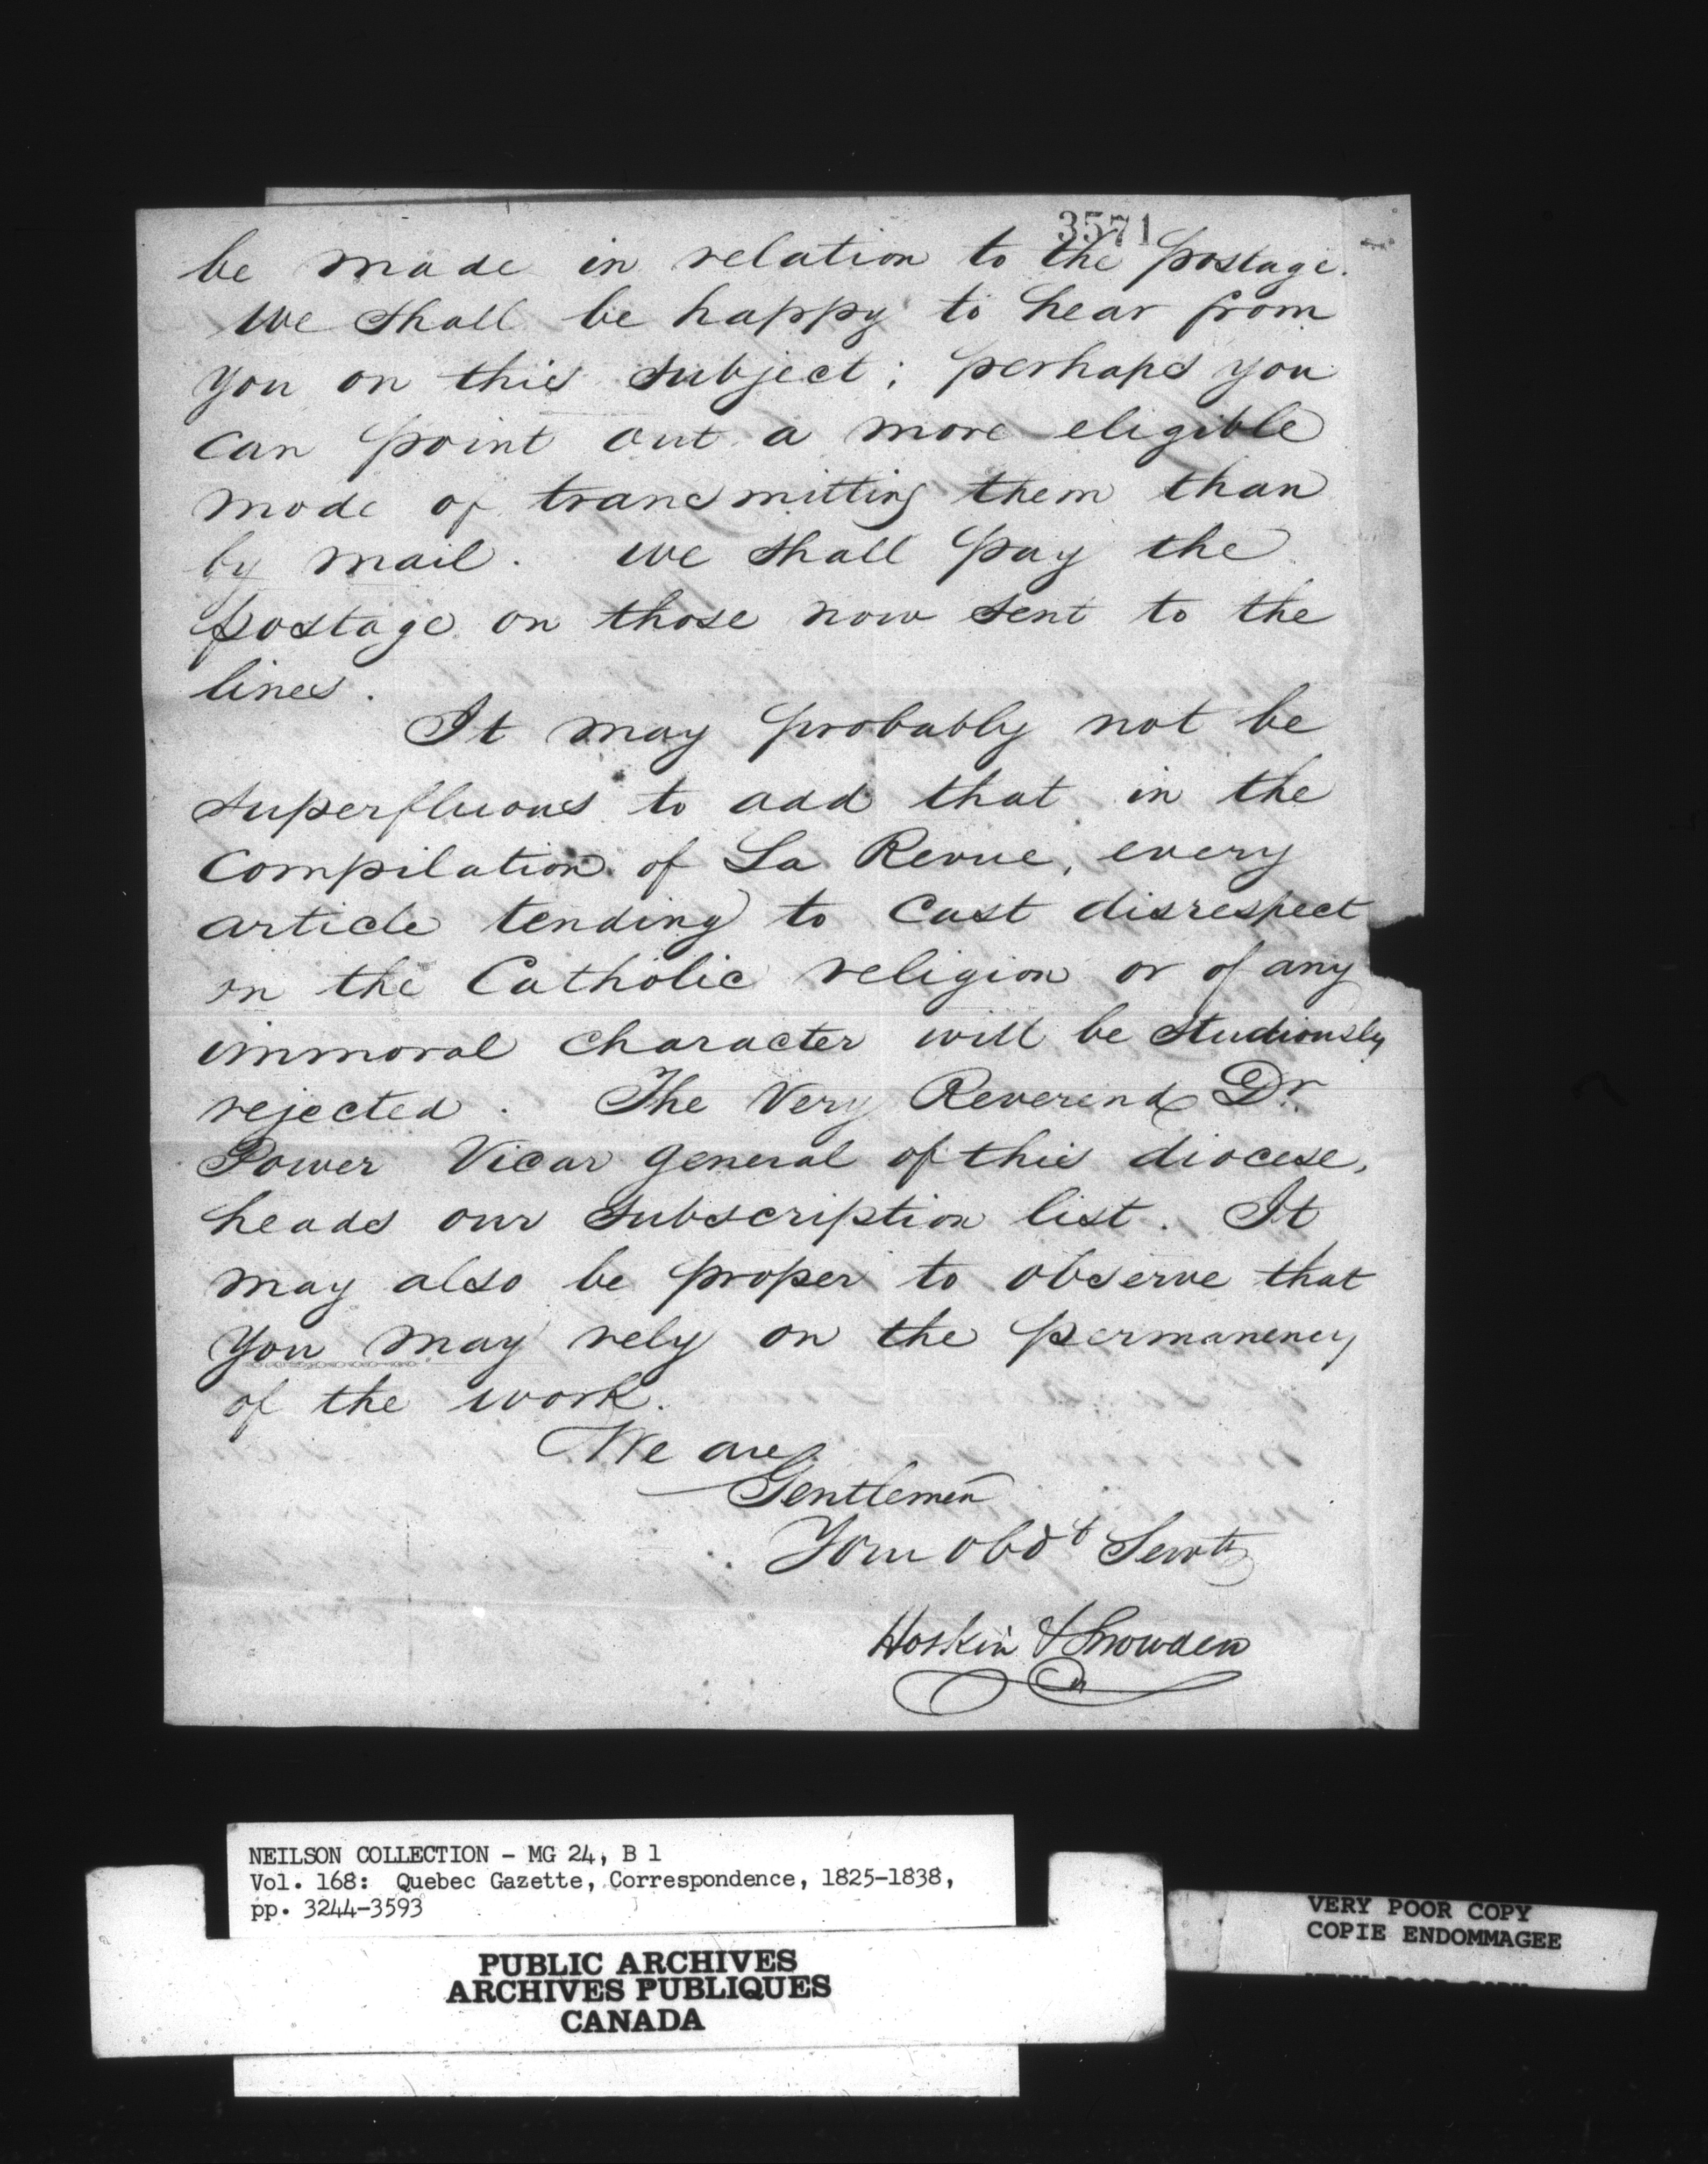 3571
be made in relation to the postage.
We shall be happy to hear from
you on this subject; perhaps you
can point out a more eligible
mode of transmitting them than
by mail. We shall pay the
postage on those now sent to the
lines.
It may probably not be
superfluous to add that in the
compilation of La Revue, every
article tending to cast disrespect
on the Catholic religion or of any
immoral character will be studiously
rejected. The Very Reverend Dr.
Power Vicar general of this diocese,
heads our subscription list. It
may also be proper to observe that
you may rely on the permanency
of the work.
We are
Gentlemen
Your obdt Servts
Hoskin & Snowden
NEILSON COLLECTION - MG 24, B 1
Vol. 168: Quebec Gazette, Correspondence, 1825-1838,
pp. 3244-3593
PUBLIC ARCHIVES
ARCHIVES PUBLIQUES
CANADA
VERY POOR COPY
COPIE ENDOMMAGEE